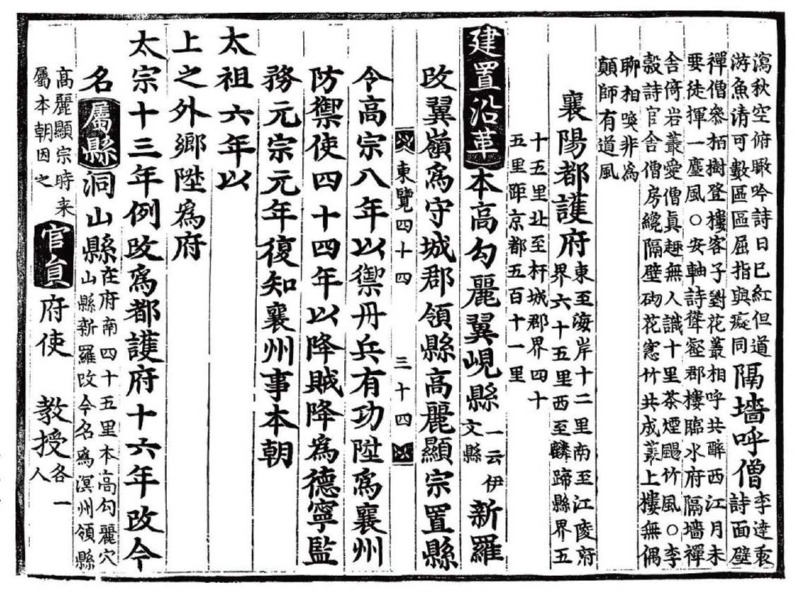 瀉秋空俯瞰吟詩日已紅但道
游魚清可數區區屈指與癡同
隔墻呼僧
李達衷
詩面壁
禪僧參栢樹登樓客子對花叢相呼共醉西江月未
要徒揮一麈風○安軸詩聳壑郡樓臨水府隔墻禪
舍倚岩叢愛僧眞趣無人識十里茶煙颺竹風○李
穀詩官舍僧房纔隔壁砌花窓竹共成叢上樓無偶
聊相喚非爲
顚師有道風
襄陽都護府
東至海岸十二里南至江陵府
界六十五里西至麟蹄縣界五
十五里北至杆城郡界四十
五里距京都五百十一里
建置沿革本高勾麗翼峴縣
一云伊
文縣
新羅
改翼嶺爲守城郡領縣高麗顯宗置縣
東覽四十四 三十四
令高宗八年以禦丹兵有功陞爲襄州
防禦使四十四年以降賊降爲德寧監
務元宗元年復知襄州事本朝
太祖六年以
上之外鄕陞爲府
太宗十三年例改爲都護府十六年改今
名屬縣洞山縣
在府南四十五里本高勾麗穴
山縣新羅改今名爲溟州領縣
高麗顯宗時来
屬本朝因之
官員府使 教授
各一
人